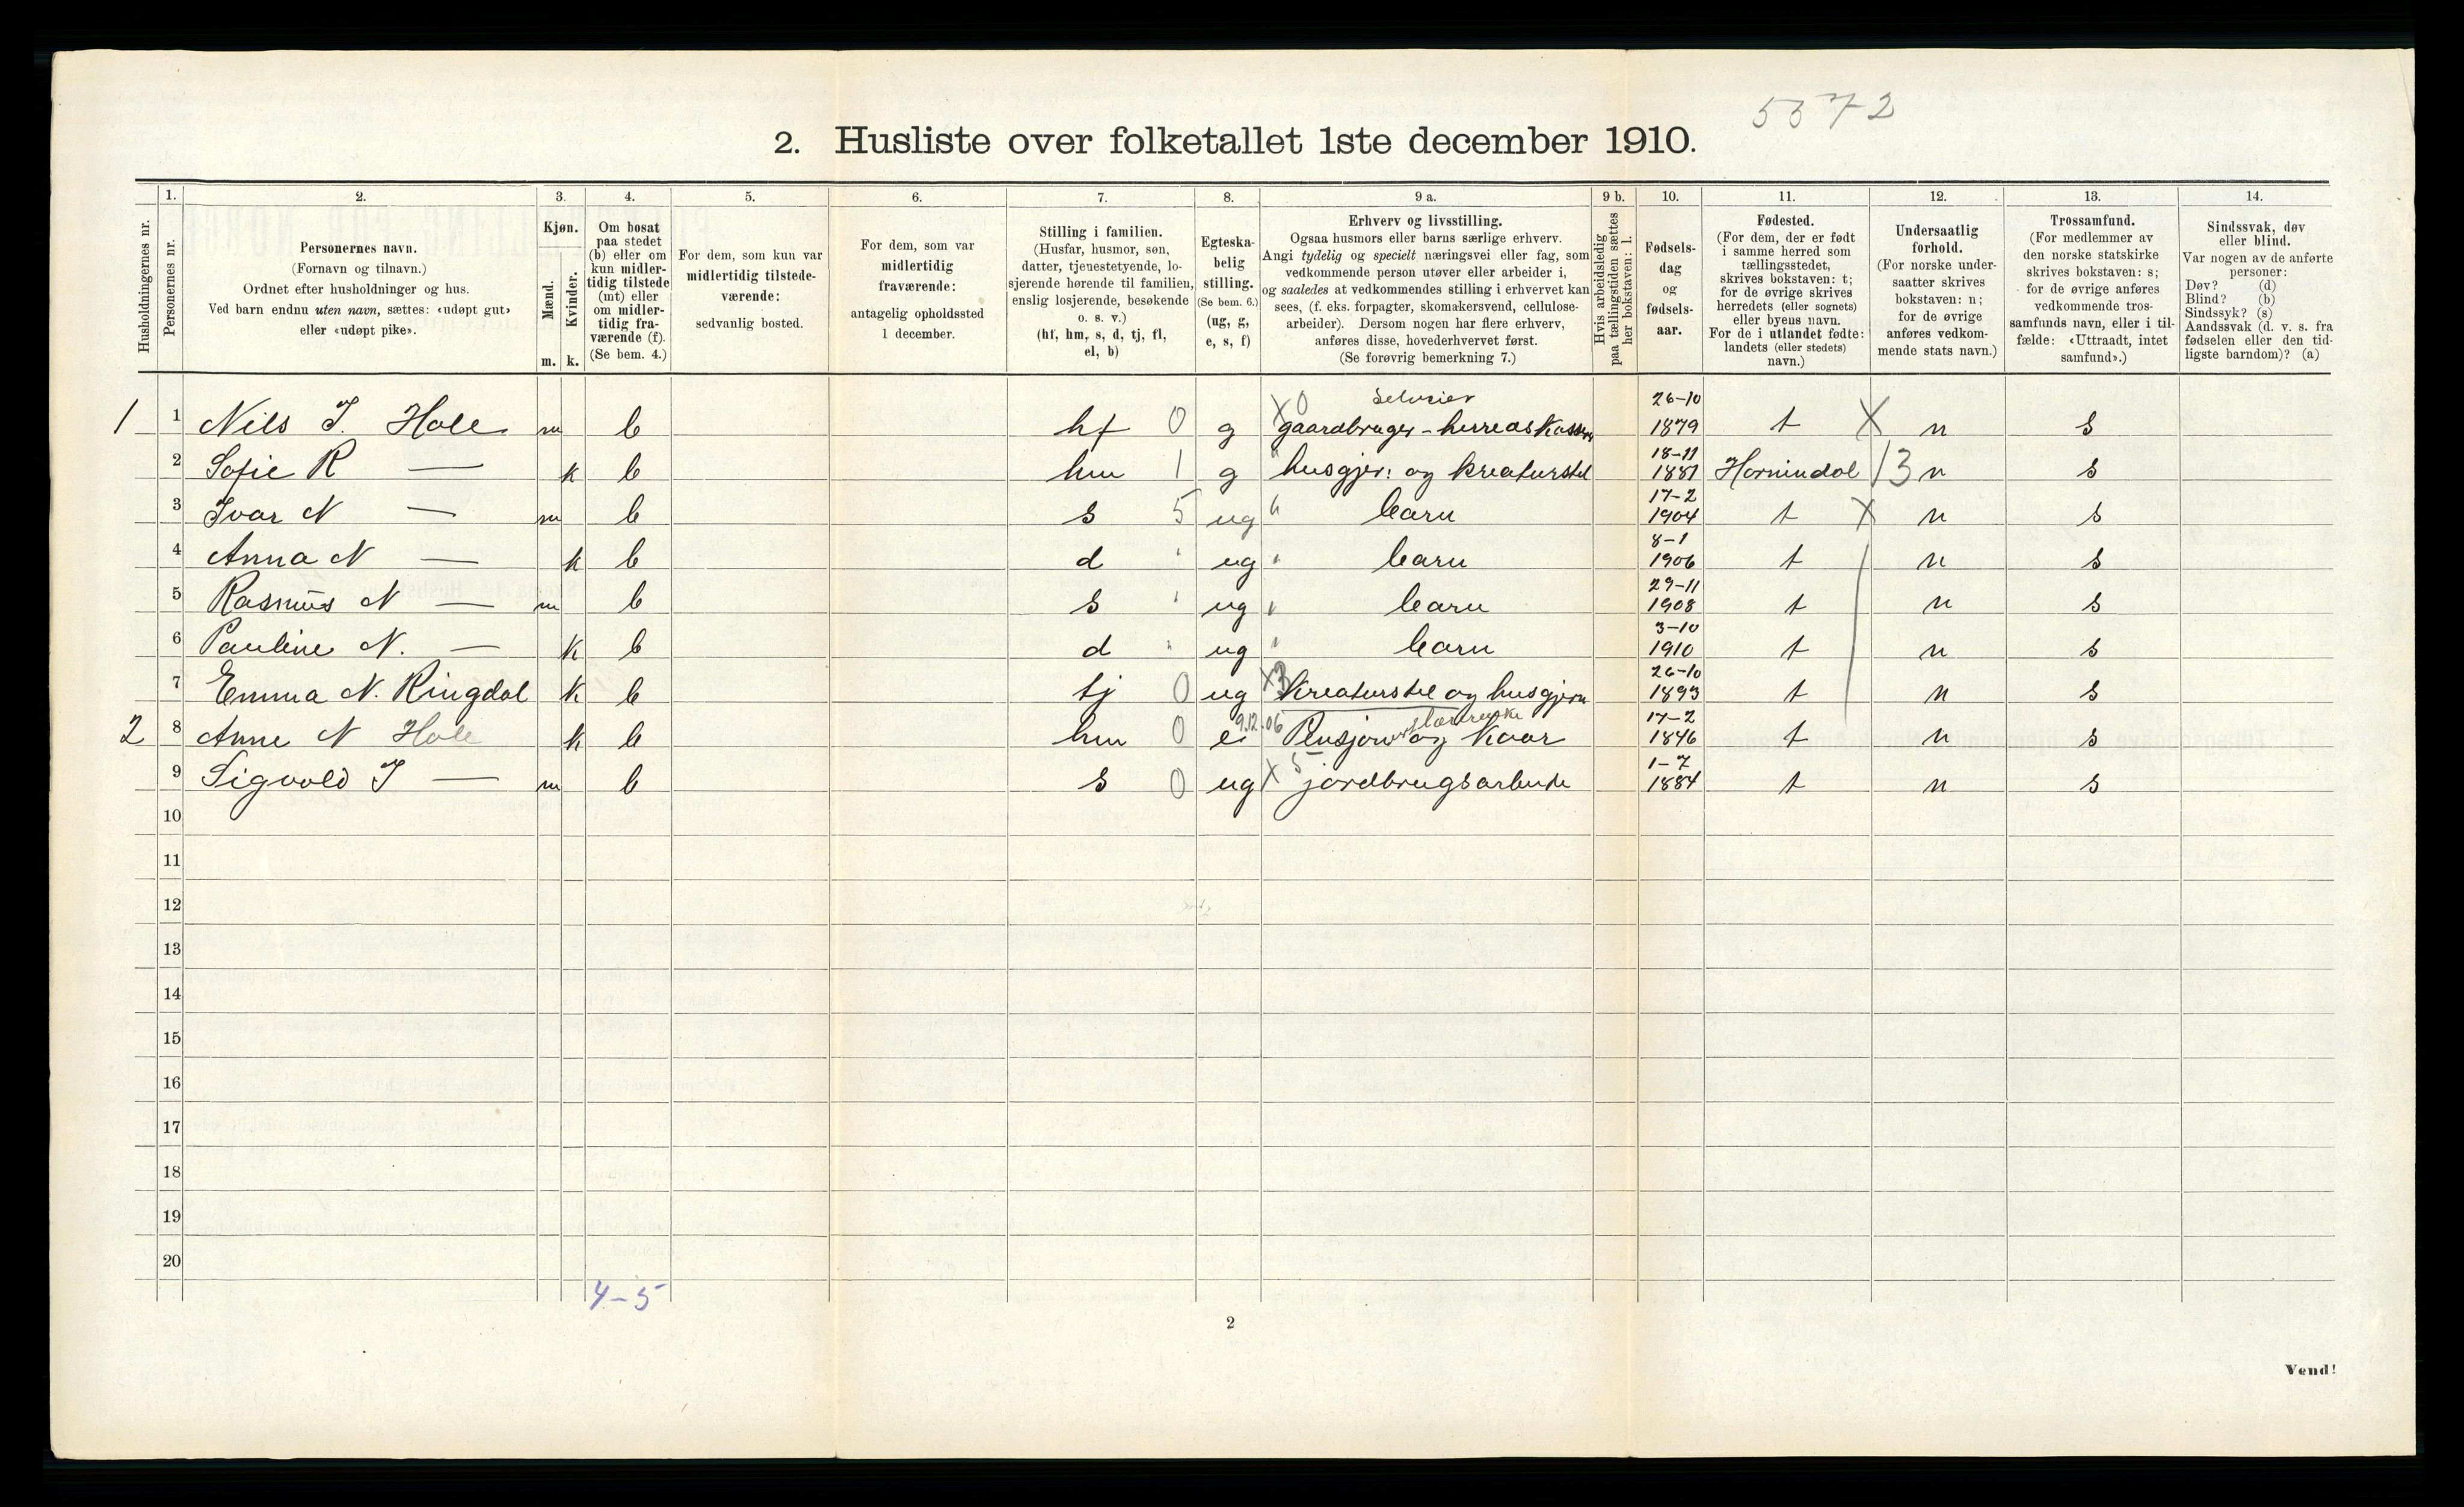 5572
2. Husliste over folketallet 1ste december 1910.
Husholdningernes nr.
1.
Personernes nr.
2.
Personernes navn.
(Fornavn og tilnavn.)
Ordnet efter husholdninger og hus.
Ved barn endnu uten navn, sættes: «udøpt gut»
eller «udøpt pike».
3.
Kjøn.
Mænd.
Kvinder.
m. k.
4.
Om bosat
paa stedet
(b) eller om
kun midler-
tidig tilstede
(mt) eller
om midler-
tidig fra-
værende (f).
(Se bem. 4.)
5.
For dem, som kun var
midlertidig tilstede-
værende:
sedvanlig bosted.
6.
For dem, som var
midlertidig
fraværende:
antagelig opholdssted
1 december.
7.
Stilling i familien.
(Husfar, husmor, søn,
datter, tjenestetyende, lo-
sjerende hørende til familien,
enslig losjerende, besøkende
o. s. v.)
(hf, hm, s, d, tj, fl,
el, b)
8.
Egteska-
belig
stilling.
(Se bem. 6.)
(ug, g,
e, s, f)
9 a.
Erhverv og livsstilling.
Ogsaa husmors eller barns særlige erhverv.
Angi tydelig og specielt næringsvei eller fag, som
vedkommende person utøver eller arbeider i,
og saaledes at vedkommendes stilling i erhvervet kan
sees, (f. eks. forpagter, skomakersvend, cellulose-
arbeider). Dersom nogen har flere erhverv,
anføres disse, hovederhvervet først.
(Se forøvrig bemerkning 7.)
9 b.
Hvis arbeidsledig
paa tællingstiden sættes
her bokstaven: l.
10.
Fødsels-
dag
og
fødsels-
aar.
11.
Fødested.
(For dem, der er født
i samme herred som
tællingsstedet,
skrives bokstaven: t;
for de øvrige skrives
herredets (eller sognets)
eller byens navn.
For de i utlandet fødte:
landets (eller stedets)
navn.)
12.
Undersaatlig
forhold.
(For norske under-
saatter skrives
bokstaven: n;
for de øvrige
anføres vedkom-
mende stats navn.)
13.
Trossamfund.
(For medlemmer av
den norske statskirke
skrives bokstaven: s;
for de øvrige anføres
vedkommende tros-
samfunds navn, eller i til-
fælde: «Uttraadt, intet
samfund».)
14.
Sindssvak, døv
eller blind.
Var nogen av de anførte
personer:
Døv? (d)
Blind? (b)
Sindssyk? (s)
Aandssvak (d. v. s. fra
fødselen eller den tid-
ligste barndom)? (a)
selveier 26-10
1 1 Nils I. Hole m b hf 0 g X 0 gaardbruger - herredskasser 1879 t X n s
18-11
2 Sofie R — k b hm 1 g " husgjer: og kreaturstel 1881 Hornindal 13 n s
17-2
3 Ivar N — m b s 5 ug " barn 1904 t X n s
8-1
4 Anna N — k b d " ug " barn 1906 t n s
29-11
5 Rasmus N — m b s " ug " barn 1908 t n s
3-10
6 Pauline N. — k b d " ug " barn 1910 t n s
26-10
7 Emma N. Ringdal k b tj 0 ug X3 kreaturstel og husgjern 1893 t n s
9.12.06 17-2
2 8 Anne N Hole k b hm 0 e Pensjon og Kaar 1846 t n s
1-7
9 Sigvald I — m b s 0 ug X 5 jordbrugsarbeide 1884 t n s
10
11
12
13
14
15
16
17
18
19
20
4-5
2
Vend!